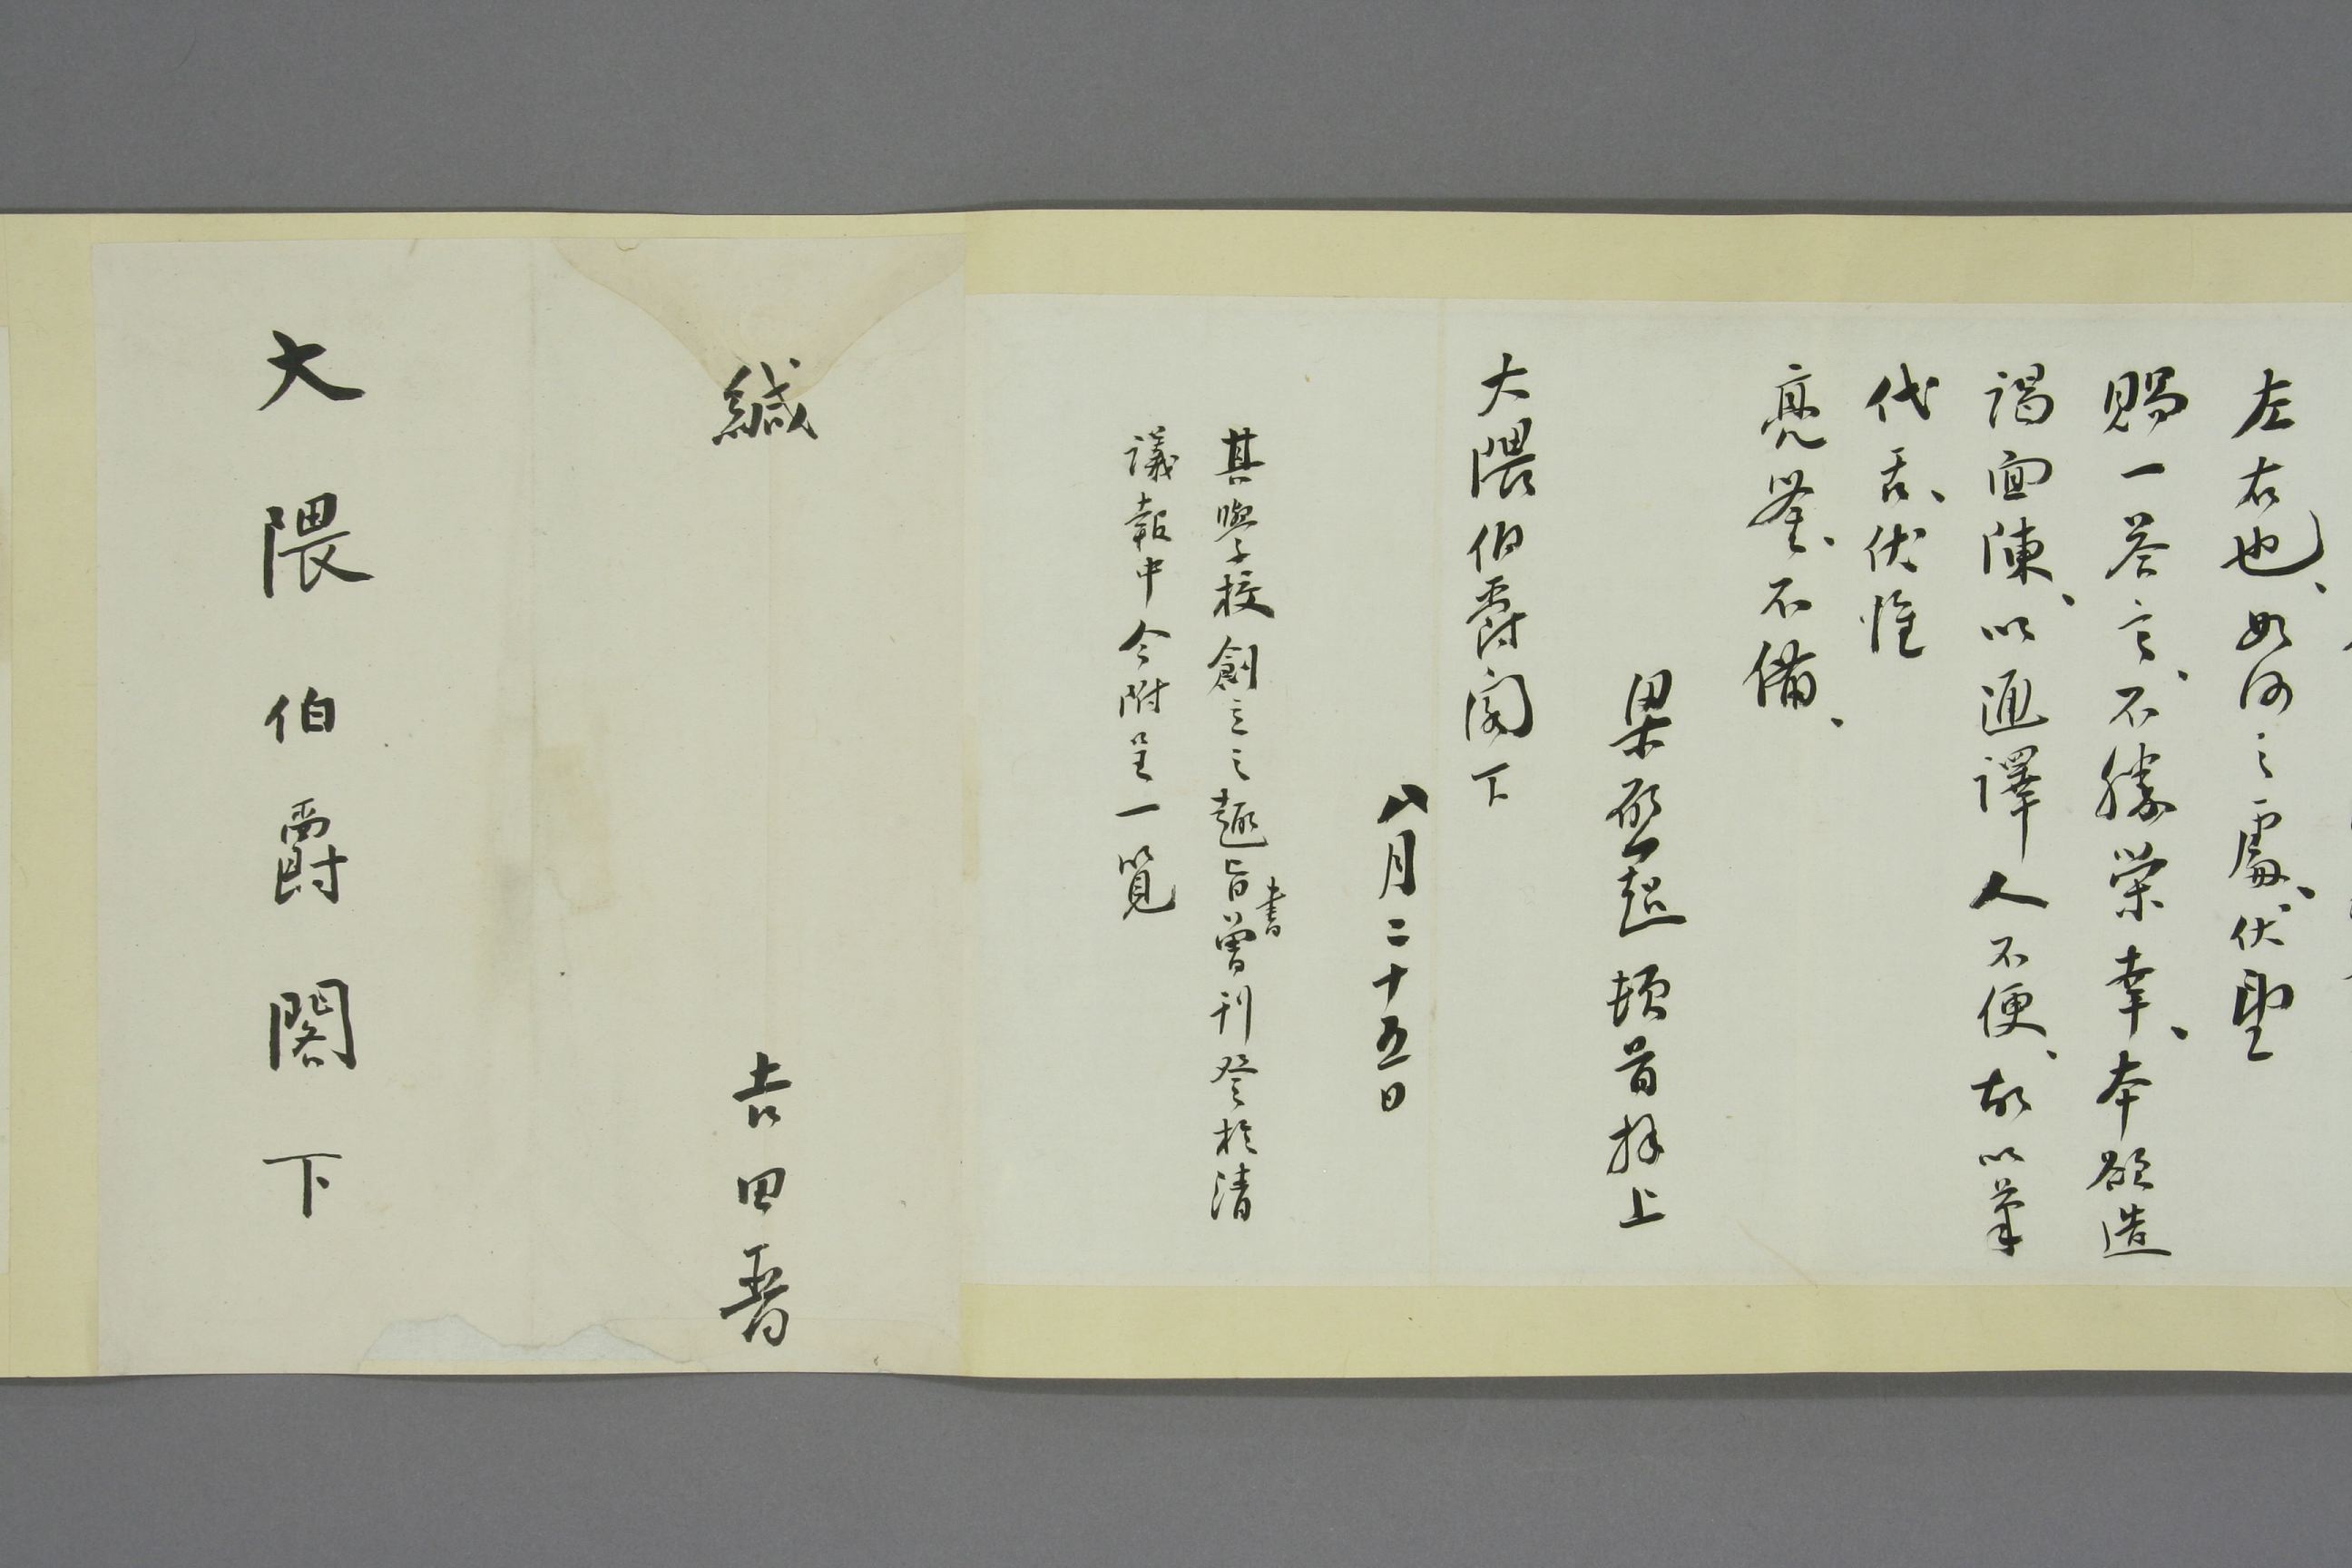 左右也、如何之處、伏望
賜一答言、不勝榮幸、本欲造
謁面陳、以通譯人不便、故以筆
代舌、伏惟
亮鑒、不備、
梁啓超 頓首拜上
大隈伯爵閣下
八月二十五日
其學校創立之趣旨書曾刊登於清
議報中今附呈一覧
緘
吉田晋
大隈伯爵閣下